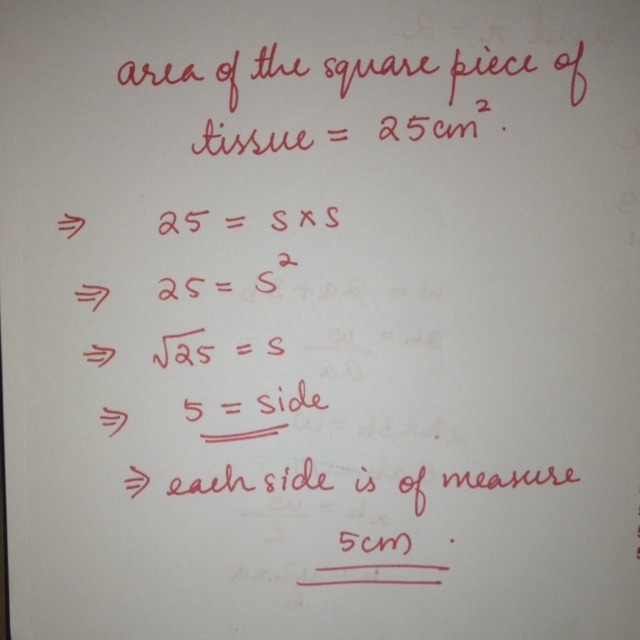 area of the square piece of
tissue = 25cm².
⇒ 25 = s × s
⇒ 25 = s²
⇒ √25 = s
⇒ 5 = side
⇒ each side is of measure
5cm.